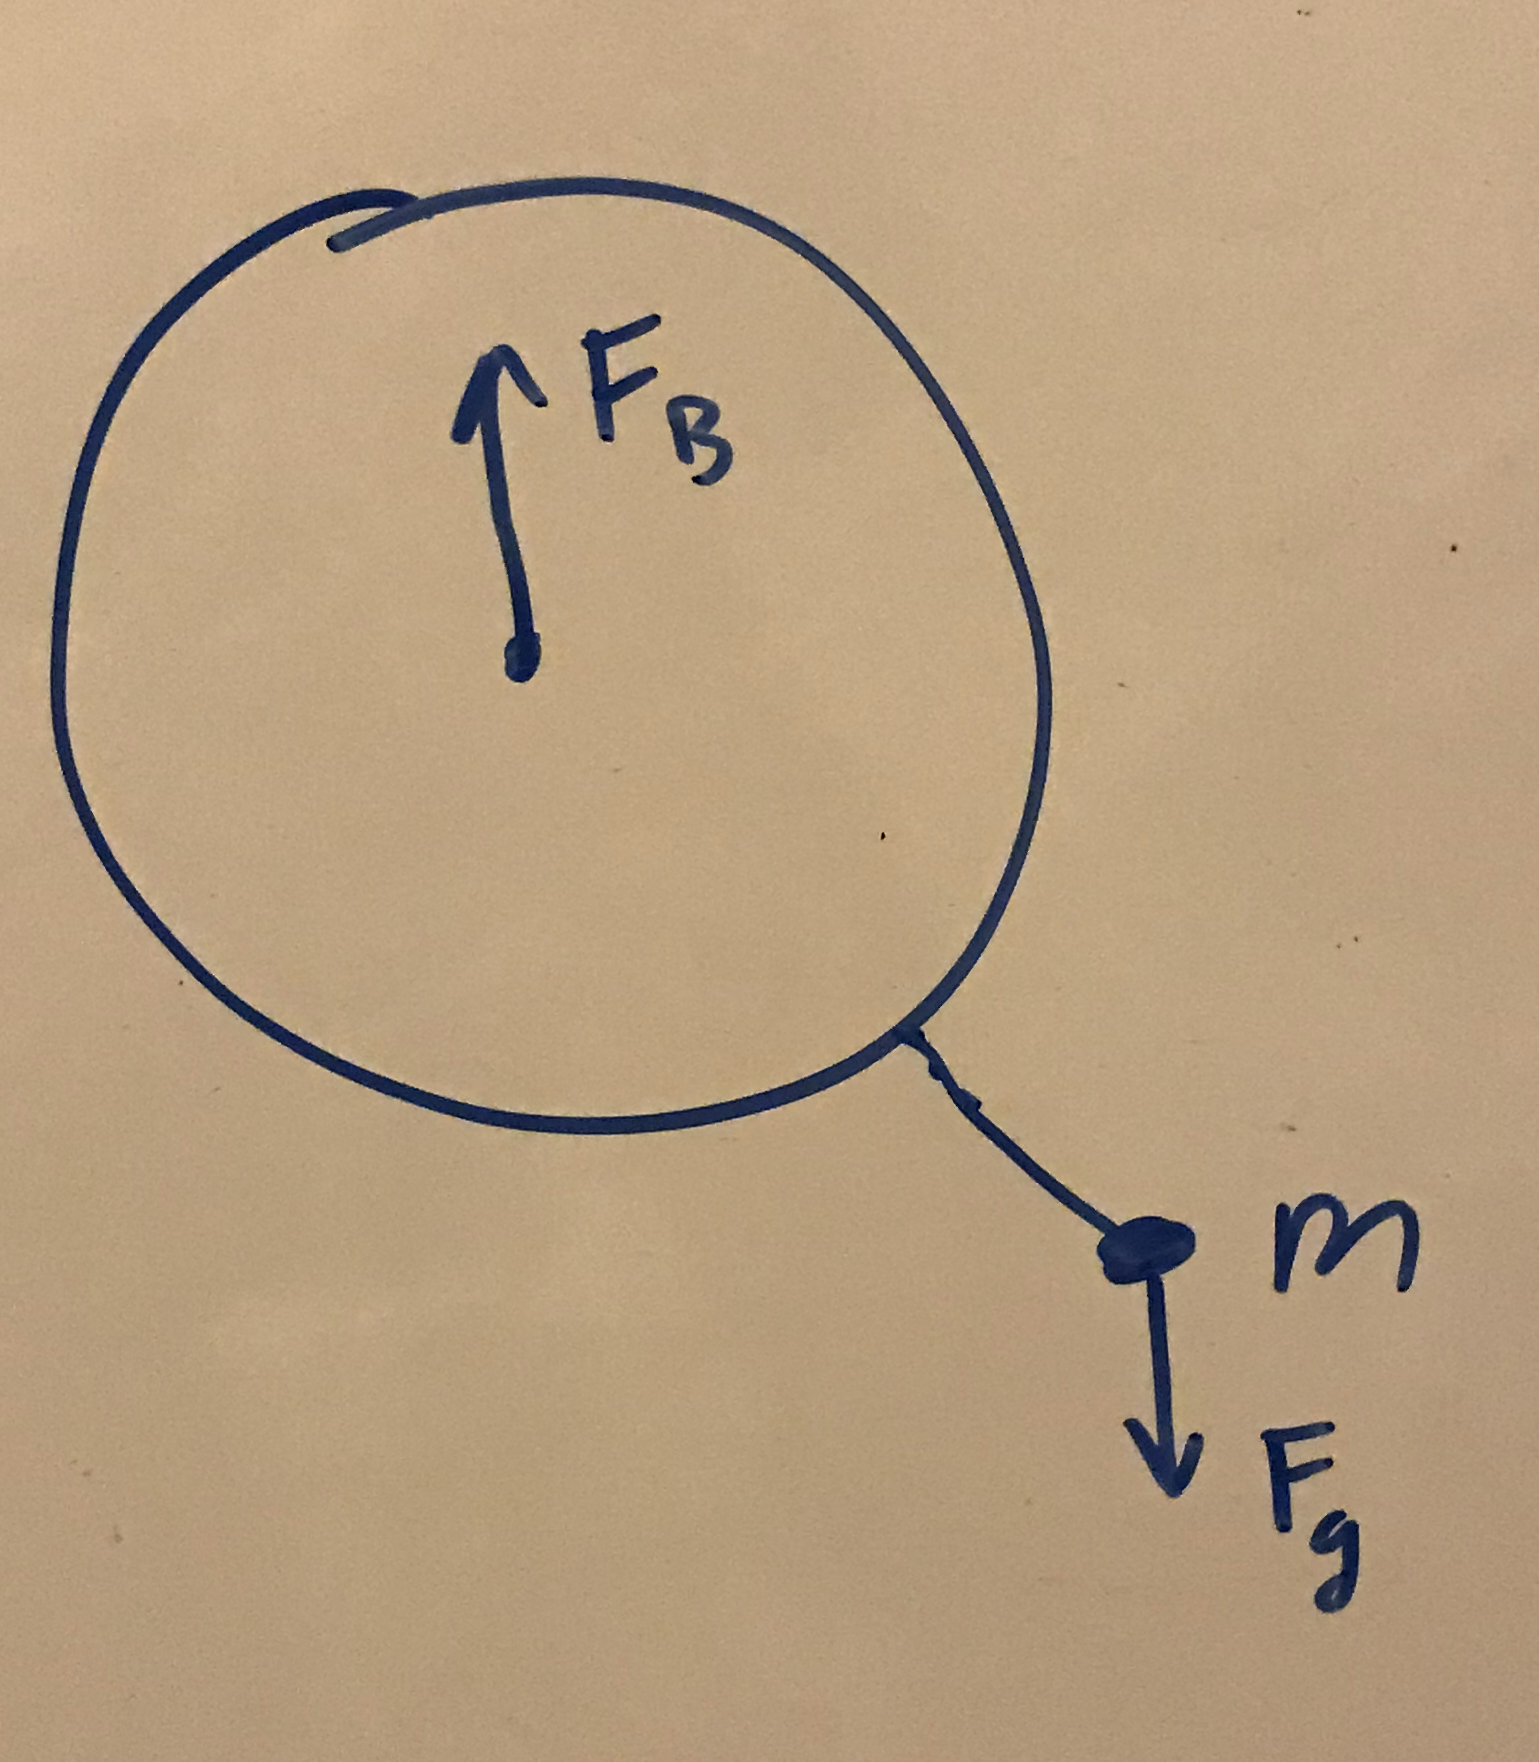 F_B
m
F_g